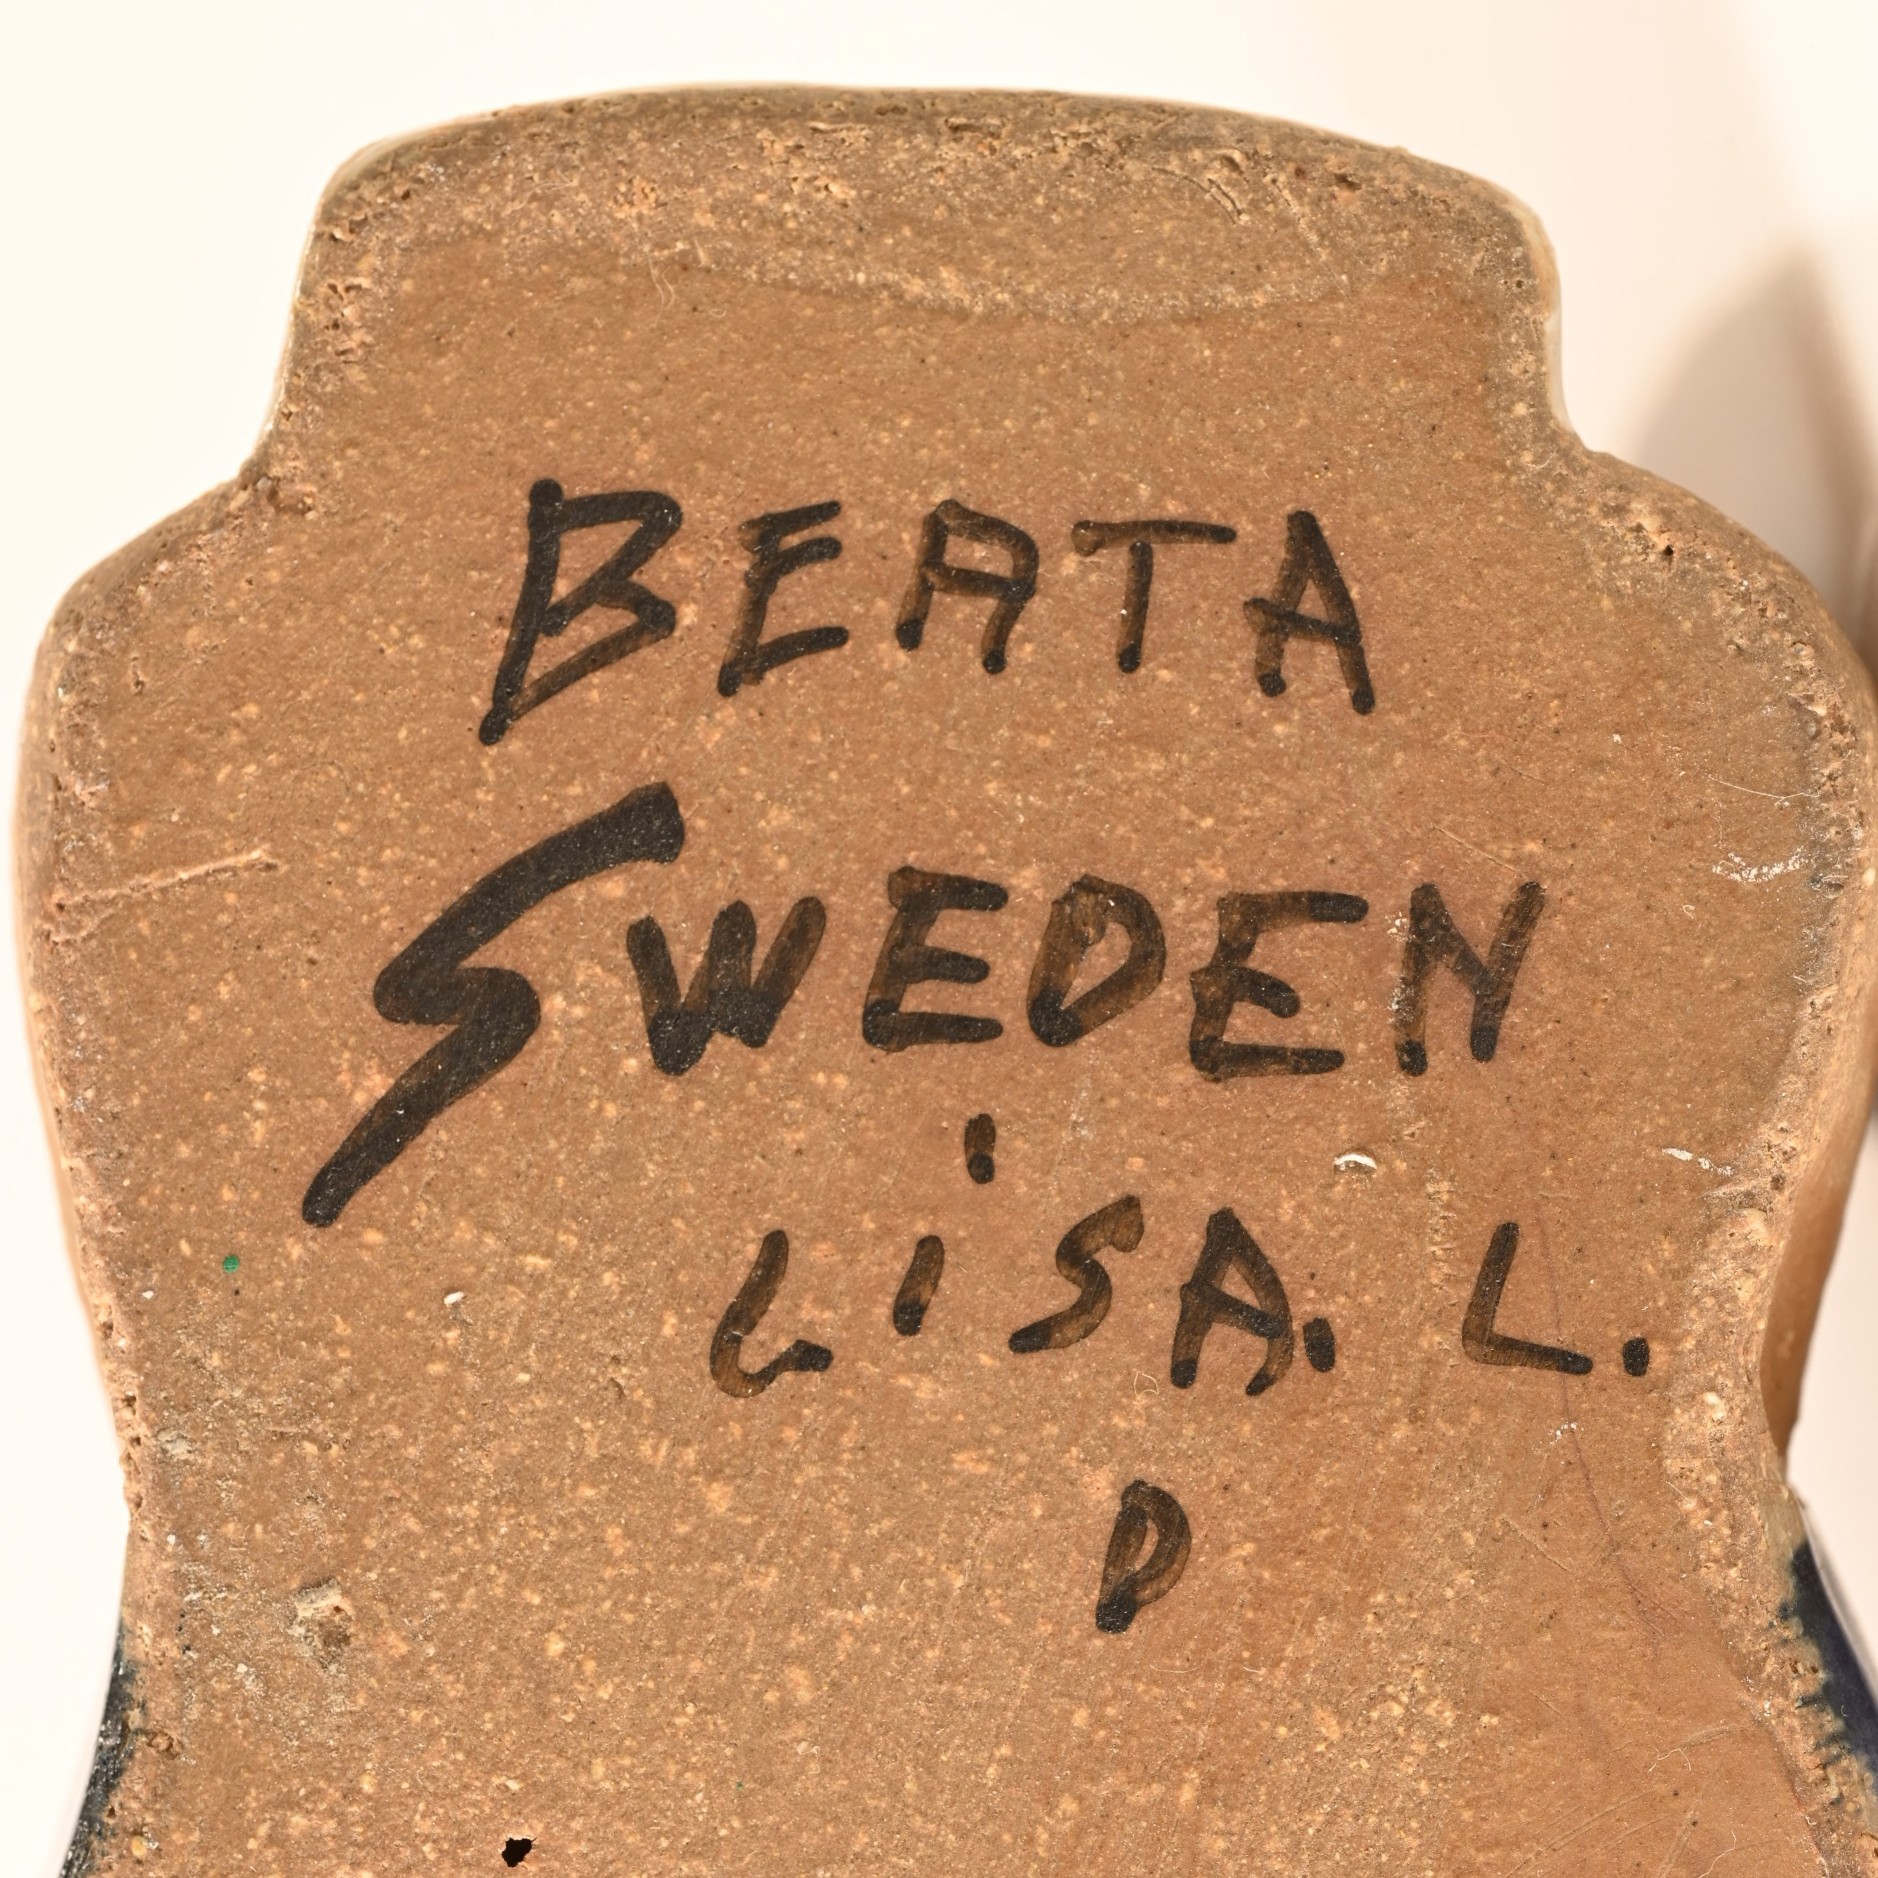 BEATA
SWEDEN
LiSA. L.
D